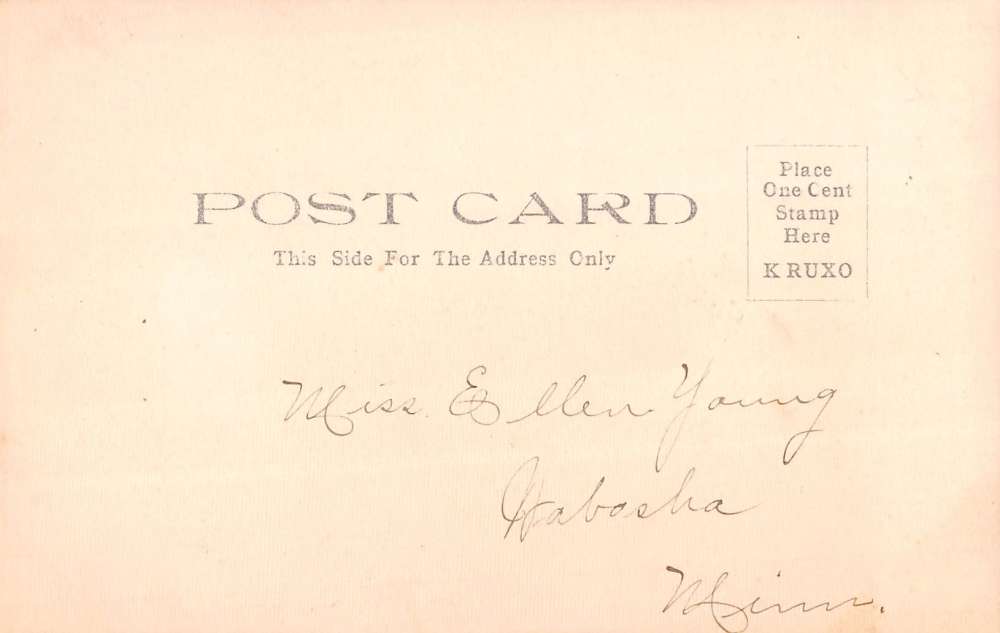 POST CARD
This Side For The Address Only
Place
One Cent
Stamp
Here
KRUXO
Miss. Ellen Young
Wabasha
Minn.